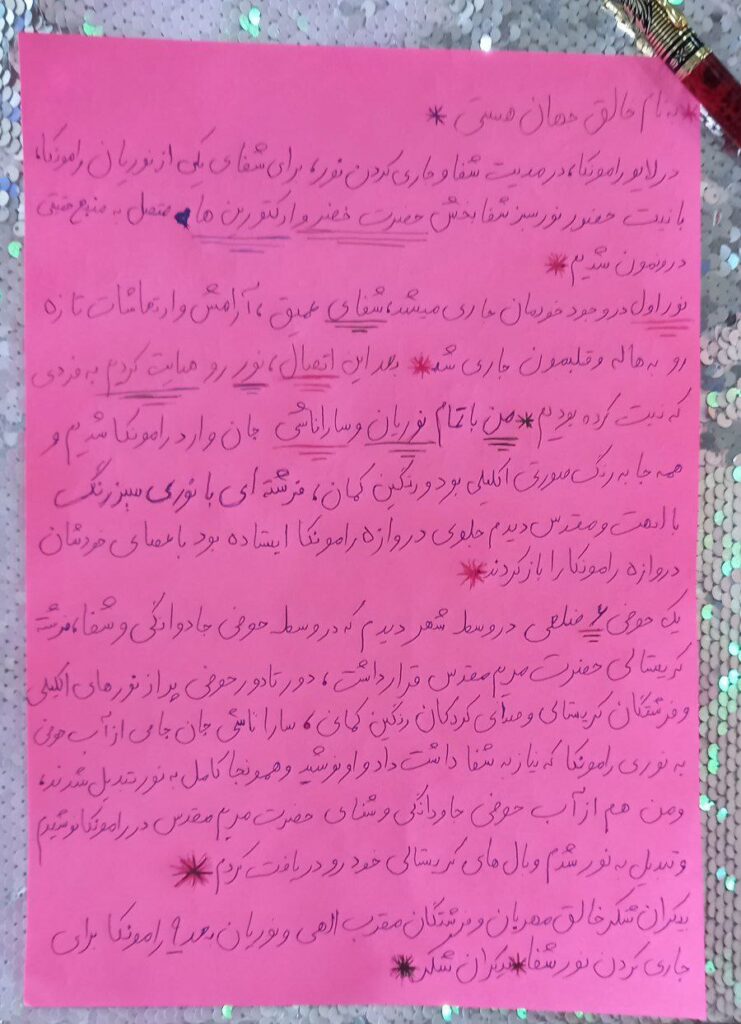 به نام خالق جهان هستی *
در لایو رامونکا، در مدیت شفا و جاری کردن نور، برای شفای یکی از نوریان رامونکا،
با نیت حضور نور سبز شفابخش حضرت خضر و ارکتورین ها، متصل به منبع حقیقی
درونمون شدیم *
نور اول در وجود خودمان جاری میشد، شفای عمیق، آرامش و ارتعاشات تازه
رو به هاله و قلبمون جاری شد * بعد این اتصال، نور رو هدایت کردم به فردی
که نیت کرده بودیم * من با تمام نوریان و ساراناشی جان وارد رامونکا شدیم و
همه جا به رنگ صورتی اکلیلی بود و رنگین کمان، فرشته ای با نوری سبز رنگ
با ابهت و مقدس دیدم جلوی دروازه رامونکا ایستاده بود با عصای خودشان
دروازه رامونکا را باز کردند *
یک حوض ۶ ضلعی در وسط شهر دیدم که در وسط حوض جادوانگی و شفا، فرشته
کریستالی حضرت مریم مقدس قرار داشت، دور تا دور حوض پر از نورهای اکلیلی
و فرشتگان کریستالی و صدای کودکان رنگین کمانی، ساراناشی جان جامی از آب حوض
به نوری رامونکا که نیاز به شفا داشت داد و او نوشید و همونجا کامل به نور تبدیل شدند،
و من هم از آب حوض جاودانگی و شفای حضرت مریم مقدس در رامونکا نوشیدم
و تبدیل به نور شدم و بال های کریستالی خود رو دریافت کردم *
بیکران شکر خالق مهربان و فرشتگان مقرب الهی و نوریان بعد ۹ رامونکا برای
جاری کردن نور شفا * بیکران شکر *